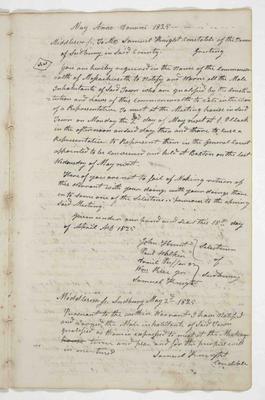 May Anno Domini 1825
Middlesex ss. To Mr Samuel Knight Constable of the Town
of Sudbury in Said County Greeting
You are hereby required in the Name of the Common
wealth of Massachusetts to Notify and Warn all the Male
Inhabitants of Said Town who are qualified by the Consti
tution and Laws of this Commonwealth to vote in the Choice
of a Representative to meet at the Meeting house in Said
Town on Monday the 2d day of May next at 1 Clock
in the afternoon on said day then and there to chuse a
Representative to Represent them in the General Court
appointed to be convened and held at Boston on the last
Wednesday of May next
Hereof you are not to fail of Making return of
this Warrant with your doings
to some one of the Selectmen previous to the opening of
Said Meeting.
Given under our hand and seal this 18th day
of April AD 1825
Selectmen
Paul Walker
of
Sudbury
Middlesex ss. Sudbury May 2d 1825
Pursuant to the within Warrant I have Notified
and warned the Male inhabitants of Said Town
qualified as therein expressed to meet at the Meeting
time and place and for the purpose
Samuel Knight
Constable